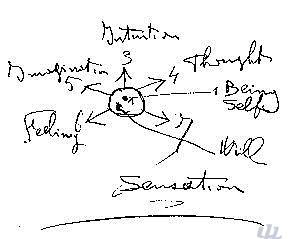 Intuition
3
Thought
4
Imagination
5
1 Being
Self
Feeling
6
7
Will
Sensation